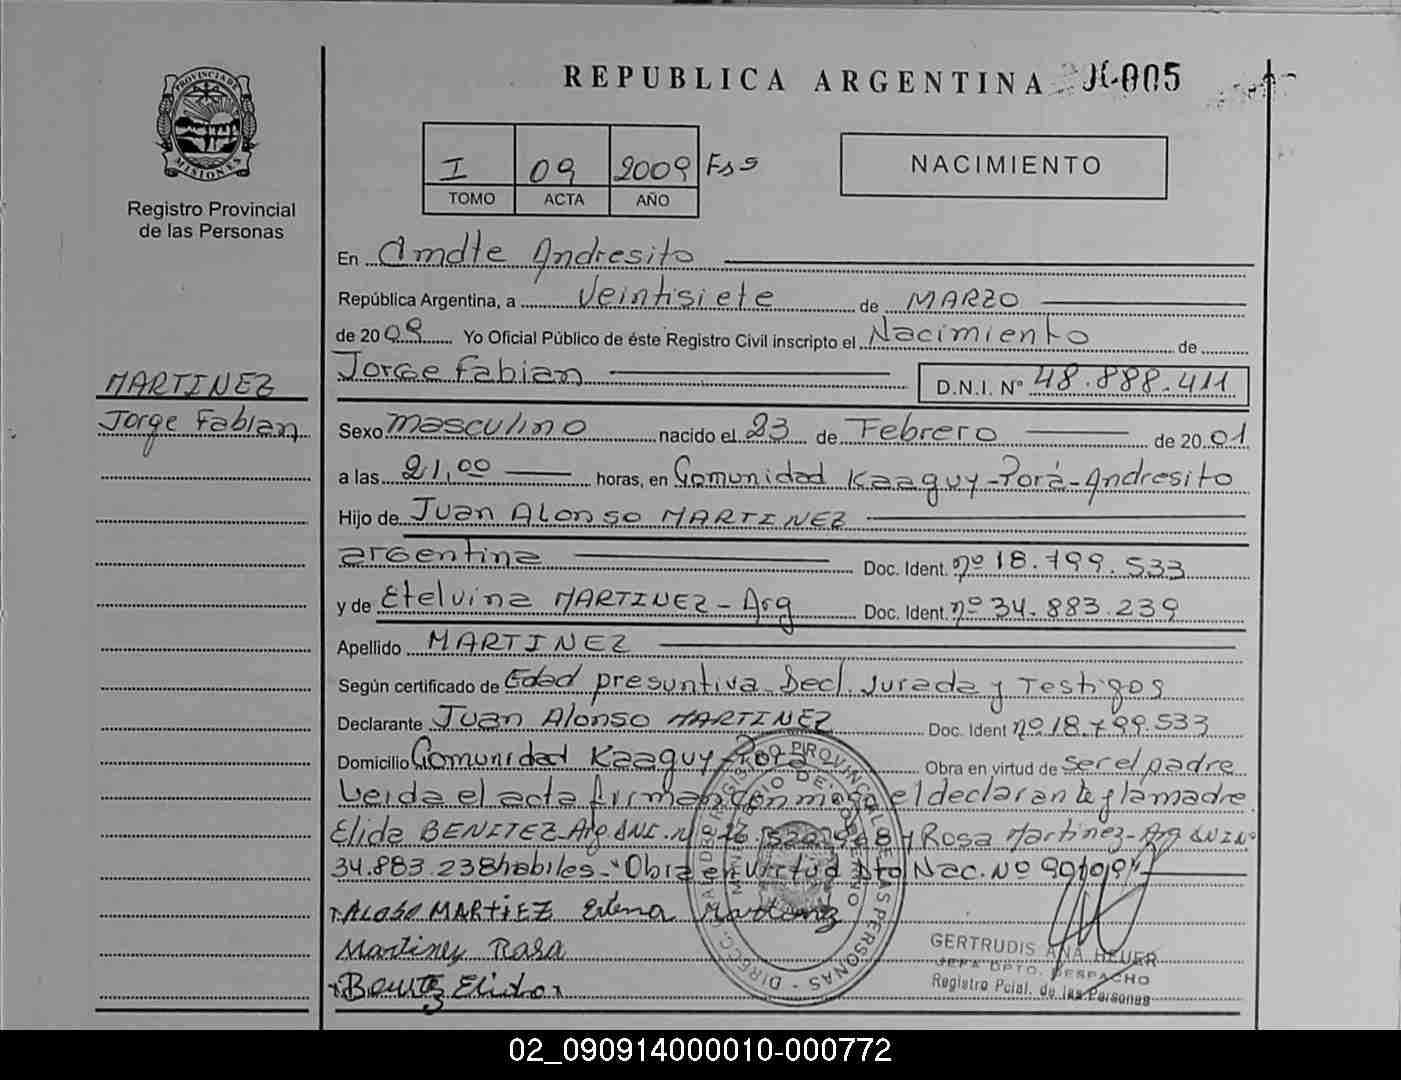 REPUBLICA ARGENTINA
PROVINCIA DE MISIONES
Registro Provincial
de las Personas
I 09 2009 Fs 5
TOMO ACTA AÑO
NACIMIENTO
En Cmdte Andresito
República Argentina, a Veintisiete de MARZO
de 2009 Yo Oficial Público de éste Registro Civil inscripto el Nacimiento de
Jorge Fabian D.N.I. Nº 48.888.411
MARTINEZ
Jorge Fabian
Sexo masculino nacido el 23 de Febrero de 2001
a las 21,00 horas, en Comunidad Kaaguy-Porá-Andresito
Hijo de Juan Alonso MARTINEZ
argentina Doc. Ident. nº 18.799.533
y de Etelvina MARTINEZ - Arg Doc. Ident. nº 34.883.239
Apellido MARTINEZ
Según certificado de Edad presuntiva Decl. Jurada y Testigos
Declarante Juan Alonso MARTINEZ Doc. Ident nº 18.799.533
Domicilio Comunidad Kaaguy-Porá Obra en virtud de ser el padre
Leida el acta firman conmigo el declarante y la madre
Elida BENITEZ Arg y Rosa Martinez - Arg
34.883.238 habiles - "Obra en virtud Dto Nac. Nº 90/09"
MARTiEZ
Martinez Rosa
Benitez Elida
GERTRUDIS ANA HEUER
JEFA DPTO. DESPACHO
Registro Pcial. de las Personas
02_090914000010-000772